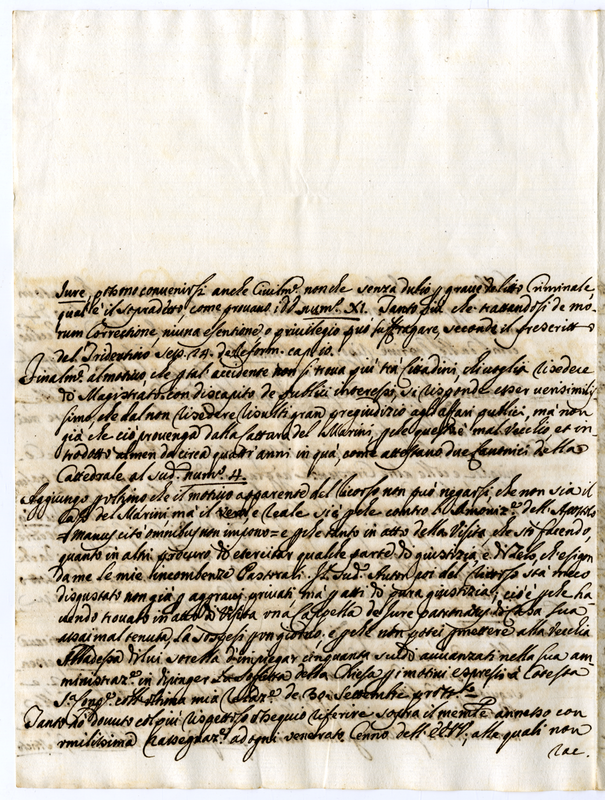 Jure, possono convenirsi anche Civilm.e non che senza dubio p grave delitto Criminale
qual'è il sopradetto, come provano i DD num.o XI. Tanto più che trattandosi de mo-
rum Correctione, niuna esentione o privilegio può suffragare, secondo il prescritto
del Tridentino Sess. 24. de Reform. cap. 10.
Finalm.e al motivo che p tal'accidente non si trova qui trà Cittadini, chi voglia risedere
di Magistrato con discapito de publici interessi, si risponde esser verisimilis-
simo, che dal non risedere risulti gran pregiudizio agl'affari publici, mà non
già che ciò provenga dalla cattura del Marini, p che questo è mal vecchio et in-
trodotto almen da circa quattro anni in quà, come attestano due Canonici della
Cattedrale al sud.o num.o 4.
Aggiungo p ultimo che il motivo apparente del Ricorso non può negarsi, che non sia il
caso del Marini mà il vero, e reale si è p che contro l'Ammoniz.e dell'Apostolo
manus citò omnibus non impono = e p che tanto in atto della Visita che stò facendo,
quanto in altri procuro di esercitar qualche parte di giustizia, e di zelo, ch'esigon
da me le mie incombenze Pastorali. Il sud.o Autor poi del Ricorso stà meco
disgustato non già p aggravi privati mà p atti di pura giustizia; cioè p che ha-
vendo trovato in atto di Visita una Cappella de Jure patronatus di Casa sua
assai mal tenuta, la sospesi p un giorno, e p che non potei permettere alla Vecchia
Abbadessa di lui sorella d'impiegar cinquanta scudi avvanzati nella sua am-
ministraz.e in dipinger la soffitta della Chiesa p i motivi espressi à Cotesta
S.a Cong.e coll'ultima mia Relaz.e de 30. Settembre
Tanto hò dovuto col qui rispettoso ossequio riferire sopra il mem.le annesso con
umilissima rassegnaz.e ad ogni venerato cenno dell'EE.VV., alle quali non